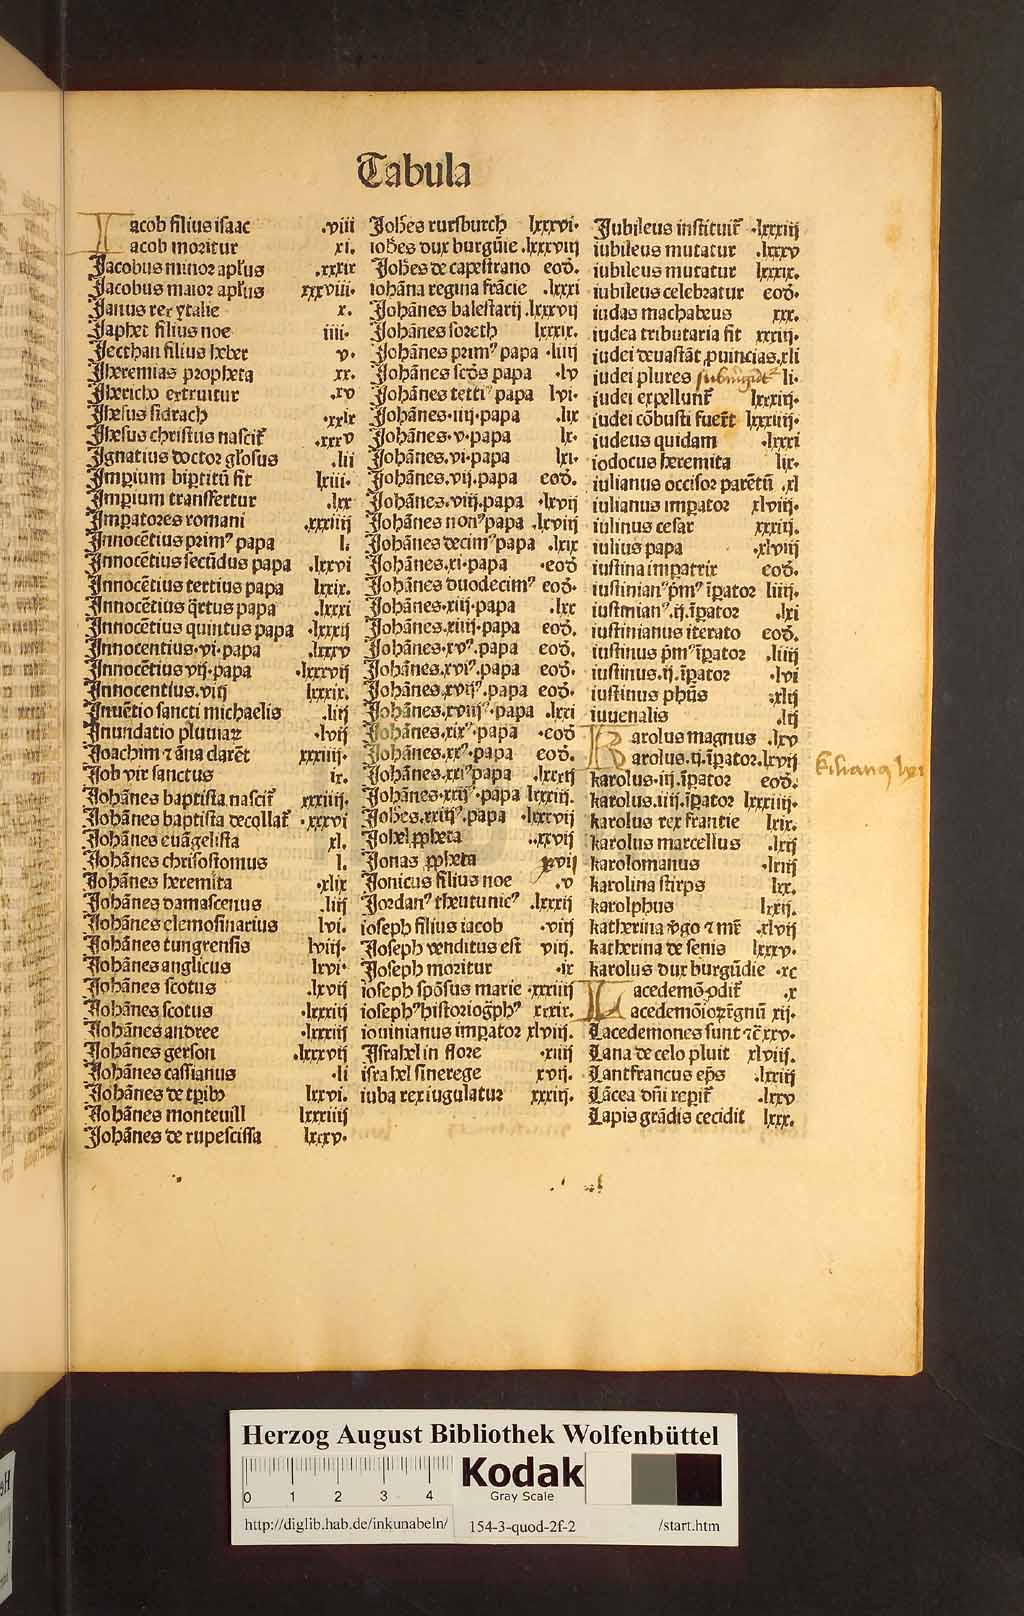 Tabula
Iacob filius isaac .viii
Iacob moritur xi.
Jacobus minor apl'us .xxxix
Jacobus maior apl'us xxxviii.
Janus rex ytalie x.
Japhet filius noe iiii.
Jecthan filius heber v.
Jheremias propheta xx.
Jhericho extruitur .xv
Jhesus sidrach .xxix
Jhesus christus nascit᷑ .xxxv
Ignatius doctor gl'osus .lii
Imꝑium biꝑtitū fit lxiii.
Imꝑium transfertur .lxx
Imꝑatores romani .xxxiiij
Innocētius primꝰ papa l.
Innocētius secūdus papa .lxxvi
Innocētius tertius papa lxxix.
Innocētius q̄rtus papa .lxxxi
Innocētius quintus papa .lxxxij
Innocentius.vi.papa .lxxxv
Innocētius vij.papa .lxxxvij
Innocentius.viij lxxxix.
Inuētio sancti michaelis .liij
Inundatio pluuiaꝝ .lvij
Joachim ⁊ āna darēt xxxiiij.
Job vir sanctus ix.
Johānes baptista nascit᷑ xxxiiij.
Johānes baptista decollat᷑ .xxxvi
Johānes euāgelista xl.
Johānes chrisostomus l.
Johānes heremita .xlix
Johānes damascenus .liij
Johānes elemosinarius lvi.
Johānes tungrensis lviij.
Johānes anglicus lxvi.
Johānes scotus .lxvij
Johānes scotus .lxxiij
Johānes andree .lxxxiij
Johānes gerson .lxxxvij
Johānes cassianus .li
Johānes de tꝑib⁊ lxxvi.
Johānes monteuill lxxxiiij
Johānes de rupescissa lxxxv.
Joh̄es rursburch lxxxvi.
ioh̄es dux burgūie .lxxxviij
Joh̄es de capestrano eod̄.
iohāna regina frācie .lxxxi
Johānes balestarij .lxxxvij
Johānes soreth lxxxix.
Johānes primꝰ papa .liiij
Johānes scd̄s papa .lv
Johānes tertiꝰ papa lvi.
Johānes.iiij.papa .lix
Johānes.v.papa lx.
Johānes.vi.papa lxi.
Johānes.vij.papa eod̄.
Johānes.viij.papa .lxvij
Johānes nonꝰ papa .lxviij
Johānes decimꝰ papa .lxix
Johānes.xi.papa .eod̄
Johānes duodecimꝰ eod̄.
Johānes.xiij.papa .lxx
Johānes.xiiij.papa eod̄.
Johānes.xvꝰ.papa eod̄.
Johānes.xviꝰ.papa eod̄.
Johānes.xvijꝰ.papa eod̄.
Johānes.xviijꝰ.papa .lxxi
Johānes.xixꝰ.papa .eod̄
Johānes.xxꝰ.papa eod̄.
Johānes.xxiꝰpapa .lxxxij
Johānes.xxijꝰ.papa lxxxiij.
Joh̄es.xxiijꝰ.papa .lxxxvij
Johel ꝓpheta .xxvij
Jonas ꝓpheta xxvij
Jonicus filius noe .v
Jordanꝰ theutunicꝰ .lxxxij
ioseph filius iacob .viij
Joseph venditus est viij.
Joseph moritur .ix
ioseph spōsus marie .xxxiiij
iosephꝰhistoriog̃phꝰ xxxix.
iouinianus imꝑator xlviij.
Israhel in flore .xiiij
israhel sine rege xvij.
iuba rex iugulatur xxxiij.
Jubileus instituit᷑ .lxxxiij
iubileus mutatur .lxxxv
iubileus mutatur lxxxix.
iubileus celebratur eod̄.
iudas machabeus xxx.
iudea tributaria fit xxxiij.
iudei deuastāt ꝓuincias.xli
iudei plures li.
iudei expellunt᷑ lxxxiij.
iudei cōbusti fuer̄t lxxxiiij.
iudeus quidam .lxxxi
iodocus heremita lix.
iulianus occisor parētū .xl
iulianus imꝑator xlviij.
iulius cesar xxxiij.
iulius papa .xlviij
iustina imꝑatrix eod̄.
iustinianꝰ p̄mꝰ īꝑator liiij.
iustinianꝰ.ij.īꝑator .lxi
iustinianus iterato eod̄.
iustinus p̄mꝰ īꝑator .liiij
iustinus.ij.īꝑator .lvi
iustinus ph̄us .xlij
iuuenalis .lij
Karolus magnus .lxv
Karolus.ij.īꝑator.lxvij
Kilianꝰ lxi
karolus.iij.īꝑator eod̄.
karolus.iiij.īꝑator lxxxiiij.
karolus rex frantie lxix.
karolus marcellus .lxij
karolomanus .lxiij
karolina stirps lxx.
karolphus lxxij.
katherina v̄go ⁊ mr̄ .xlvij
katherina de senis lxxxv.
karolus dux burgūdie .xc
Lacedemō.odit᷑ .x
Lacedemōioꝝ r̄gnū xij.
Lacedemones sunt ⁊c̄ xxv.
Lana de celo pluit xlviij.
Lantfrancus ep̄s .lxxiij
Lācea dn̄i repit᷑ .lxxv
Lapis grādis cecidit lxxx.
Herzog August Bibliothek Wolfenbüttel
0 1 2 3 4
Kodak
Gray Scale
http://diglib.hab.de/inkunabeln/ 154-3-quod-2f-2 /start.htm